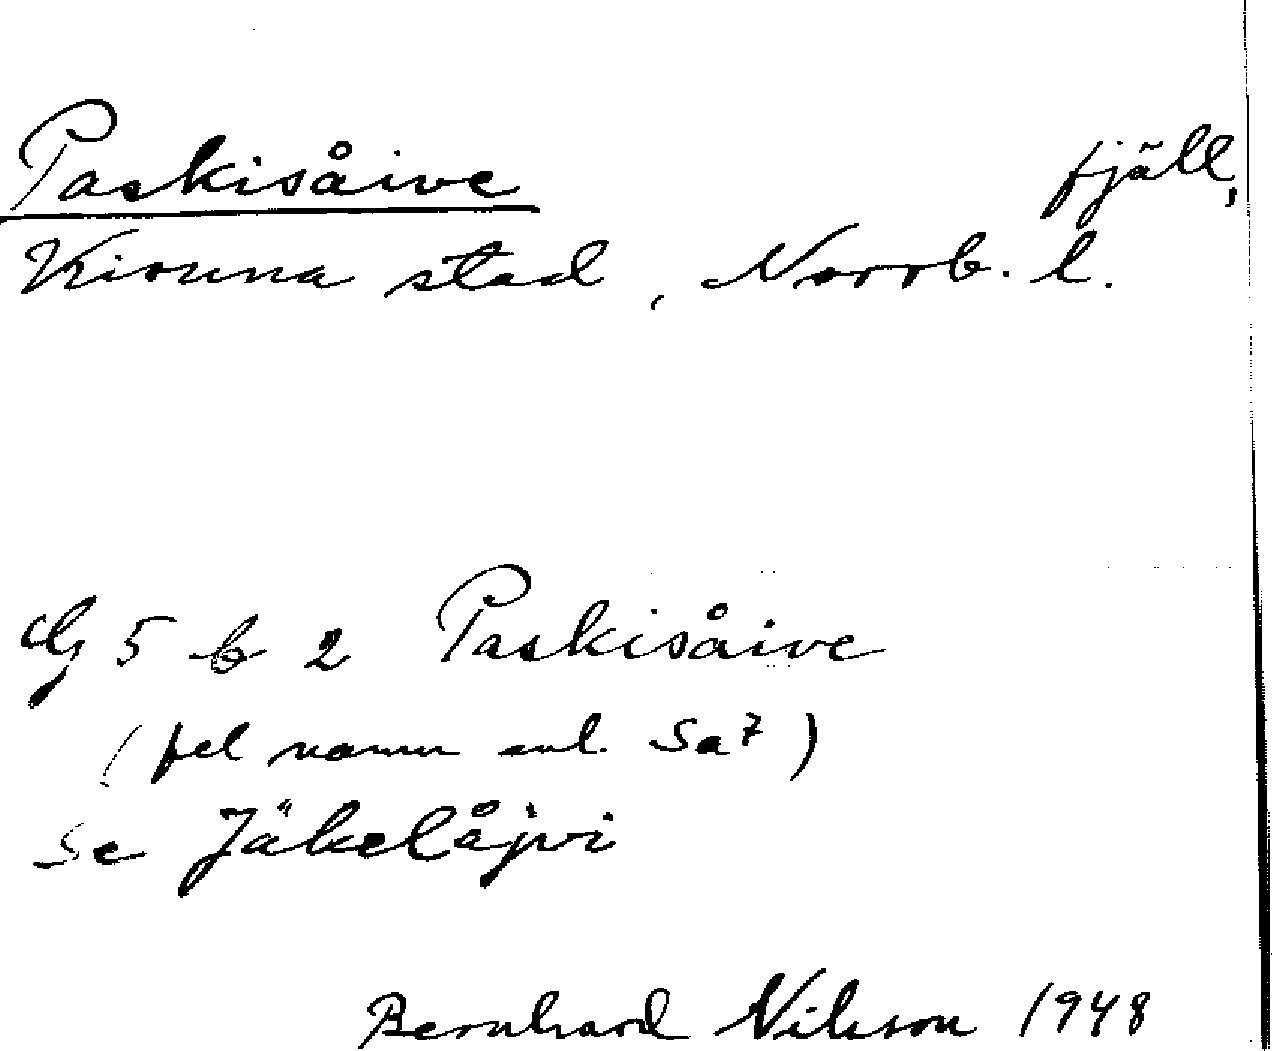 Paskisåive fjäll,
Kiruna stad, Norrb. l.
G 5 b 2 Paskisåive
(fel namn enl. Sa7)
Se Jäkelåjvi
Bernhard Nilsson 1948